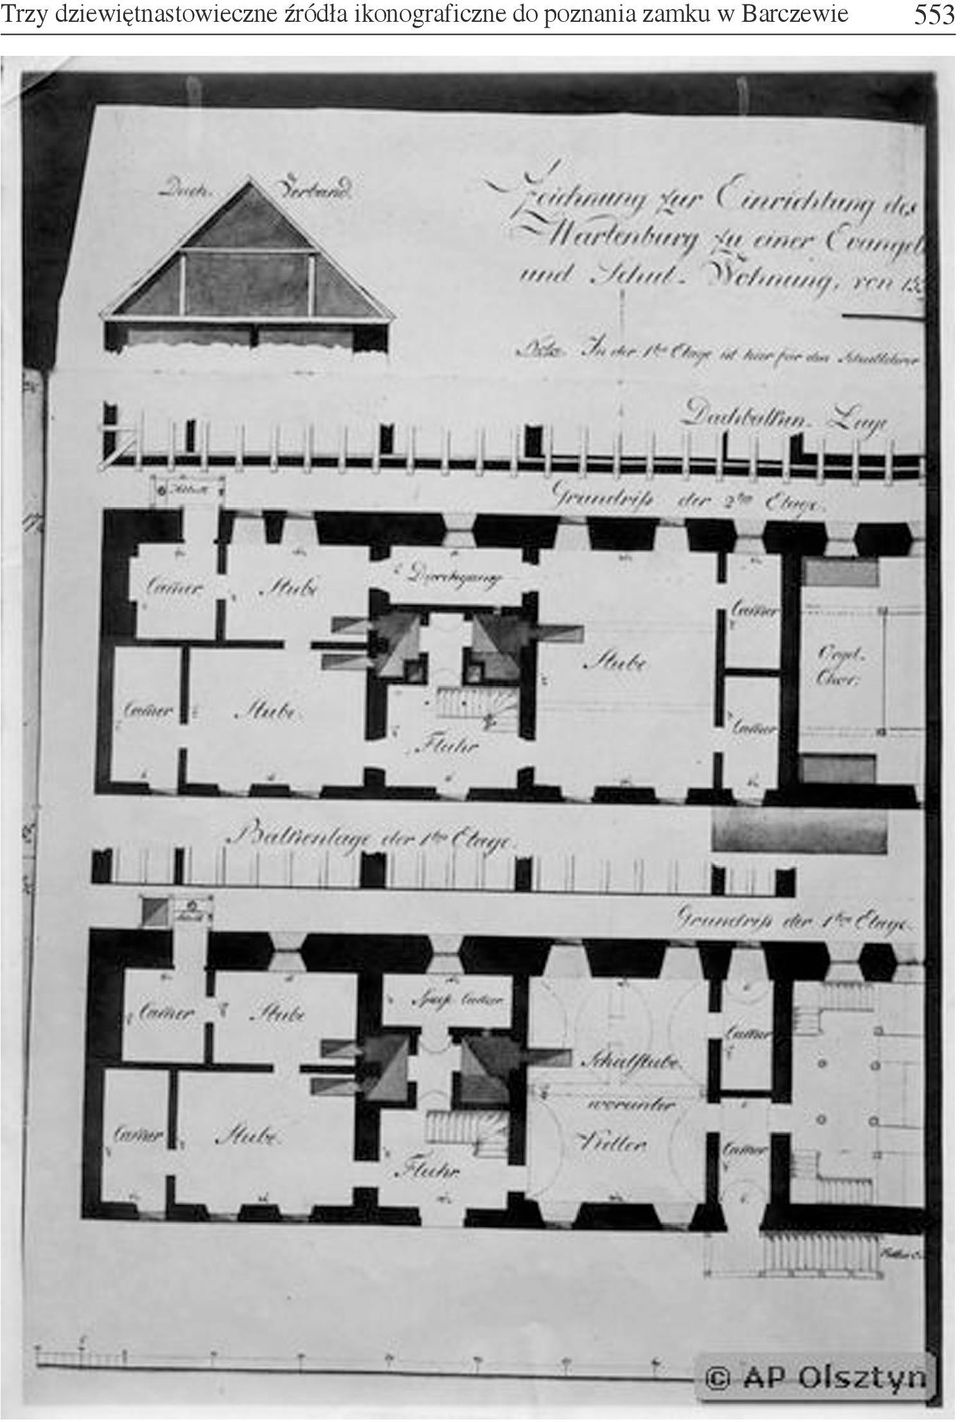 Trzy dziewiętnastowieczne źródła ikonograficzne do poznania zamku w Barczewie 553
Dach- Verband.
Zeichnung zur Einrichtung des
Wartenburg zu einer Evangel
und Schul- Wohnung, von
Nota. In der 1ten Etage ist hier für den Schullehrer
Dachbalken- Lage
Grundriß der 2ten Etage.
Abtritt
Camer
Stube
Durchgang
Stube
Camer
Orgel-
Chor.
Camer
Stube.
Fluhr
Camer
Balkenlage der 1ten Etage.
Grundriß der 1ten Etage.
Camer
Stube
Speiß Camer
Schulstube.
worunter
Keller.
Camer
Camer
Stube.
Fluhr.
Camer
© AP Olsztyn